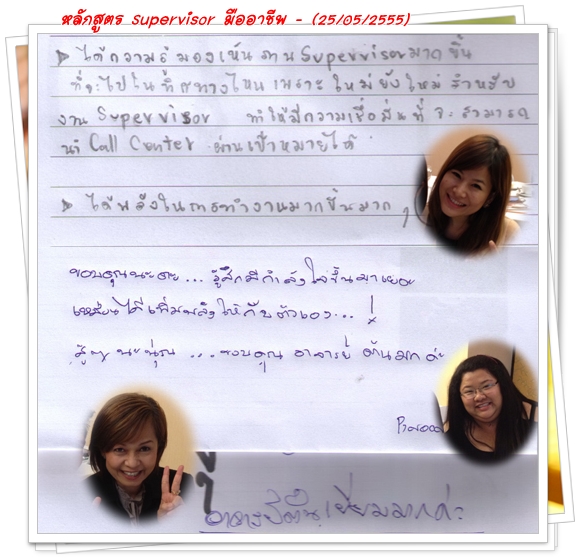 หลักสูตร Supervisor มืออาชีพ - (25/05/2555)
ได้ความรู้ มองเห็น งาน Supervisor มากขึ้น
ที่จะไปในทิศทางไหน เพราะ ใหม่ยังใหม่ สำหรับ
งาน Supervisor ทำให้มีความเชื่อมั่นที่ จะ สามารถ
นำ Call Center ผ่านเป้าหมายได้
ได้พลังในการทำงานมากขึ้นมาก
ขอบคุณนะคะ... รู้สึกมีกำลังใจขึ้นมาเยอะ
เหมือนได้เพิ่มพลังให้กับตัวเอง... !
... ขอบคุณ อาจารย์ ต้นมาก ค่ะ
อาจารย์ต้น เยี่ยมมากค่ะ